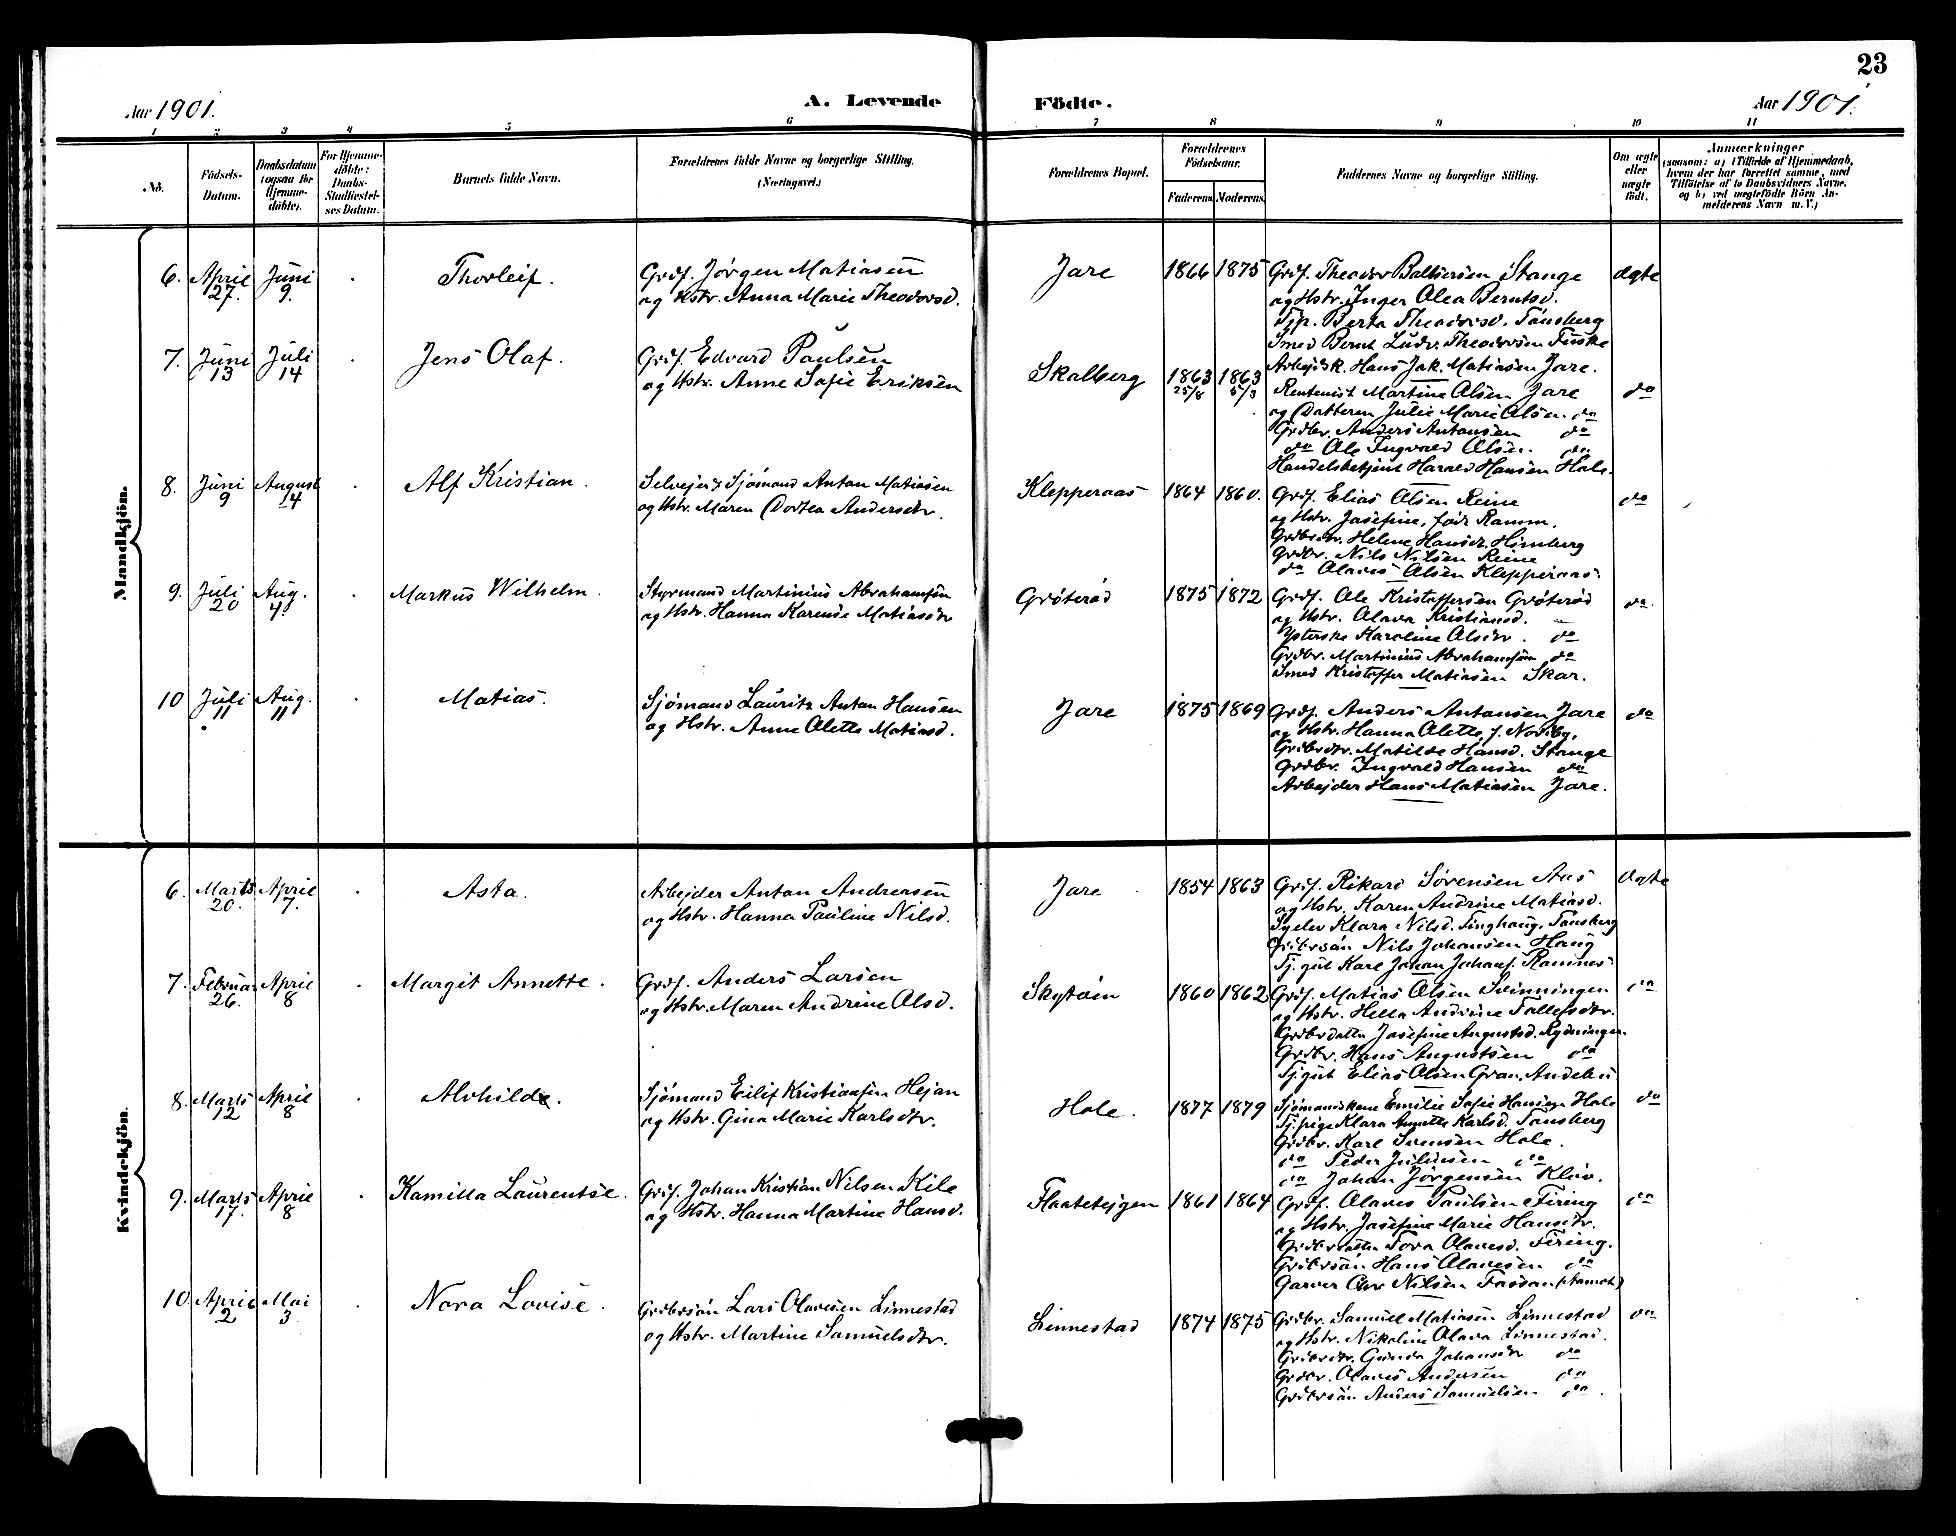 23
Aar 1901.
A. Levende Födte.
Aar 1901.
1 2 3 4 5 6 7 8 9 10 11
No.
Födsels-Datum.
Daabsdatum (ogsaa for Hjemmedöbte).
For Hjemmedöbte: Daabs-Stadfæstelses Datum.
Barnets fulde Navn.
Forældrenes fulde Navne og borgerlige Stilling.
(Næringsvei.)
Forældrenes Bopæl.
Forældrenes Födselsaar.
Faderens. Moderens.
Faddernes Navne og borgerlige Stilling.
Om ægte eller uægte födt.
Anmærkninger
(saasom: a) i Tilfælde af Hjemmedaab, hvem der har forrettet samme, med Tilföielse af to Daabsvidners Navne, og b) ved uegtefödte Börn Anmelderens Navn m. V.)
Mandkjön.
6. April 27. Juni 9. Thorleif.
Grdf. Jörgen Matiasen
og Hstr. Anna Marie Theodorsd.
Jare 1866 1875
Grdf. Theodor Baltsersen Stange
og Hstr. Inger Olea Berntsd.
Tjp. Berta Theodorsd. Tönsberg
Smed Bernt Ludv. Theodorsen
Arbejdsk. Hans Jak. Matiasen Jare.
ægte
7. Juni 13 Juli 14 Jens Olaf.
Grdf. Edvard Paulsen
og Hstr. Anne Sofie Eriksen
Skalberg 1863 25/8 1863 5/3
Rentenist Martine Olsen Jare
og Datteren Julie Marie Olsen do
Grdbr. Anders Antonsen do
do Ole Ingvald Olsen. do
Handelsbetjent Harald Hansen Hole.
do
8. Juni 9 August 14 Alf Kristian.
Selvejer & Sjömand Anton Matiasen
og Hstr. Maren Dortea Andersdtr.
Kleppernaas 1864 1860.
Grdf. Elias Olsen Reine
og Hstr. Josefine, föd Ramm.
Grdbrdtr. Helene Hansd. Himberg
Grdbr. Nils Nilsen Reine
do Olaves Olsen Kleppernaas.
do
9. Juli 20 Aug. 4. Markus Wilhelm.
Styrmand Martinius Abrahamsön
og Hstr. Hanna Karense Matiasdtr
Gröteröd 1875 1872
Grdf. Ole Kristoffersen Gröteröd
og Hstr. Olava Kristiansd.
Karoline Olsdtr. do
Grdbr. Martinius Abrahamsön do
Smed Kristoffer Matiasen Skar.
do
10 Juli 11 Aug. 11 Matias.
Sjömand Lauritz Anton Hansen
og Hstr. Anne Olette Matiasd.
Jare 1875 1869
Grdf. Anders Antonsen Jare
og Hstr. Hanna Olette, f. Nordby,
Grdbrdtr. Matilde Hansd. Stange
Grdbr. Ingvald Hansen do
Arbejder Hans Matiasen Jare.
do
Kvindekjön.
6. Marts 20. April 7. Asta.
Arbejder Anton Andersen
og Hstr. Hanna Pauline Nilsd.
Jare 1854 1863
Grdf. Rikard Sörensen Aas
og Hstr. Karen Andrine Matiasd.
Syelev Klara Nilsd. Tinghaug, Tönsberg
Grdbrsön Nils Johansen Haug
Tj.gut Karl Johan Johans. Ramnes.
ægte
7. Februar 26. April 8 Margit Annette.
Grdf. Anders Larsen
og Hstr. Maren Andrine Olsd.
Skytöien 1860 1862
Grdf. Matias Olsen Svinningen
og Hstr. Hella Andrine Tollefsdtr.
Grdbrdatter Josefine Augustsd. Rydningen
Grdbr. Hans Augustsen do
Tj.gut Elias Olsen Gran, Andebu
do
8. Marts 12 April 8 Alvhilde.
Sjömand Eilif Kristiansen Hejan
og Hstr. Gina Marie Karlsdtr.
Hole. 1877 1879
Sjömandskone Emilie Sofie Hansen Hole
Tj.pige Klara Annette Karlsd. Tönsberg
Grdbr. Karl Svensen Hole.
do Peder Juliusen do
do Johan Jörgensen Klöv.
do
9. Marts 17. April 8 Kamilla Laurentse.
Grdf. Johan Kristian Nilsen Kile
og Hstr. Hanna Martine Hansd.
Flaatetejgen 1861 1864
Grdf. Olaves Paulsen Firing
og Hstr. Josefine Marie Hansdtr.
Grdbrdatter Tora Olavesd. Firing.
Grdbrsön Hans Olavesen do
Garver Nilsen Fossan
do
10. April 2 Mai 3 Nora Lovise.
Grdbrsön Lars Olavesen Linnestad
og Hstr. Martine Samuelsdtr.
Linnestad 1874 1875
Grdbr. Samuel Matiasen Linnestad
og Hstr. Nikoline Olava Linnestad.
Grdbrdtr. Gunda Johansdtr do
Grdbr. Olaves Andersen do
Grdbrsön Anders Samuelsen do.
do